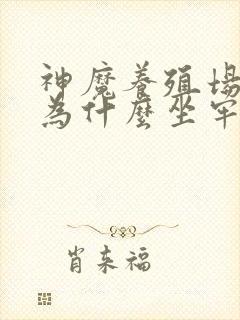 神魔養殖場
為什麼坐牢
肖来福